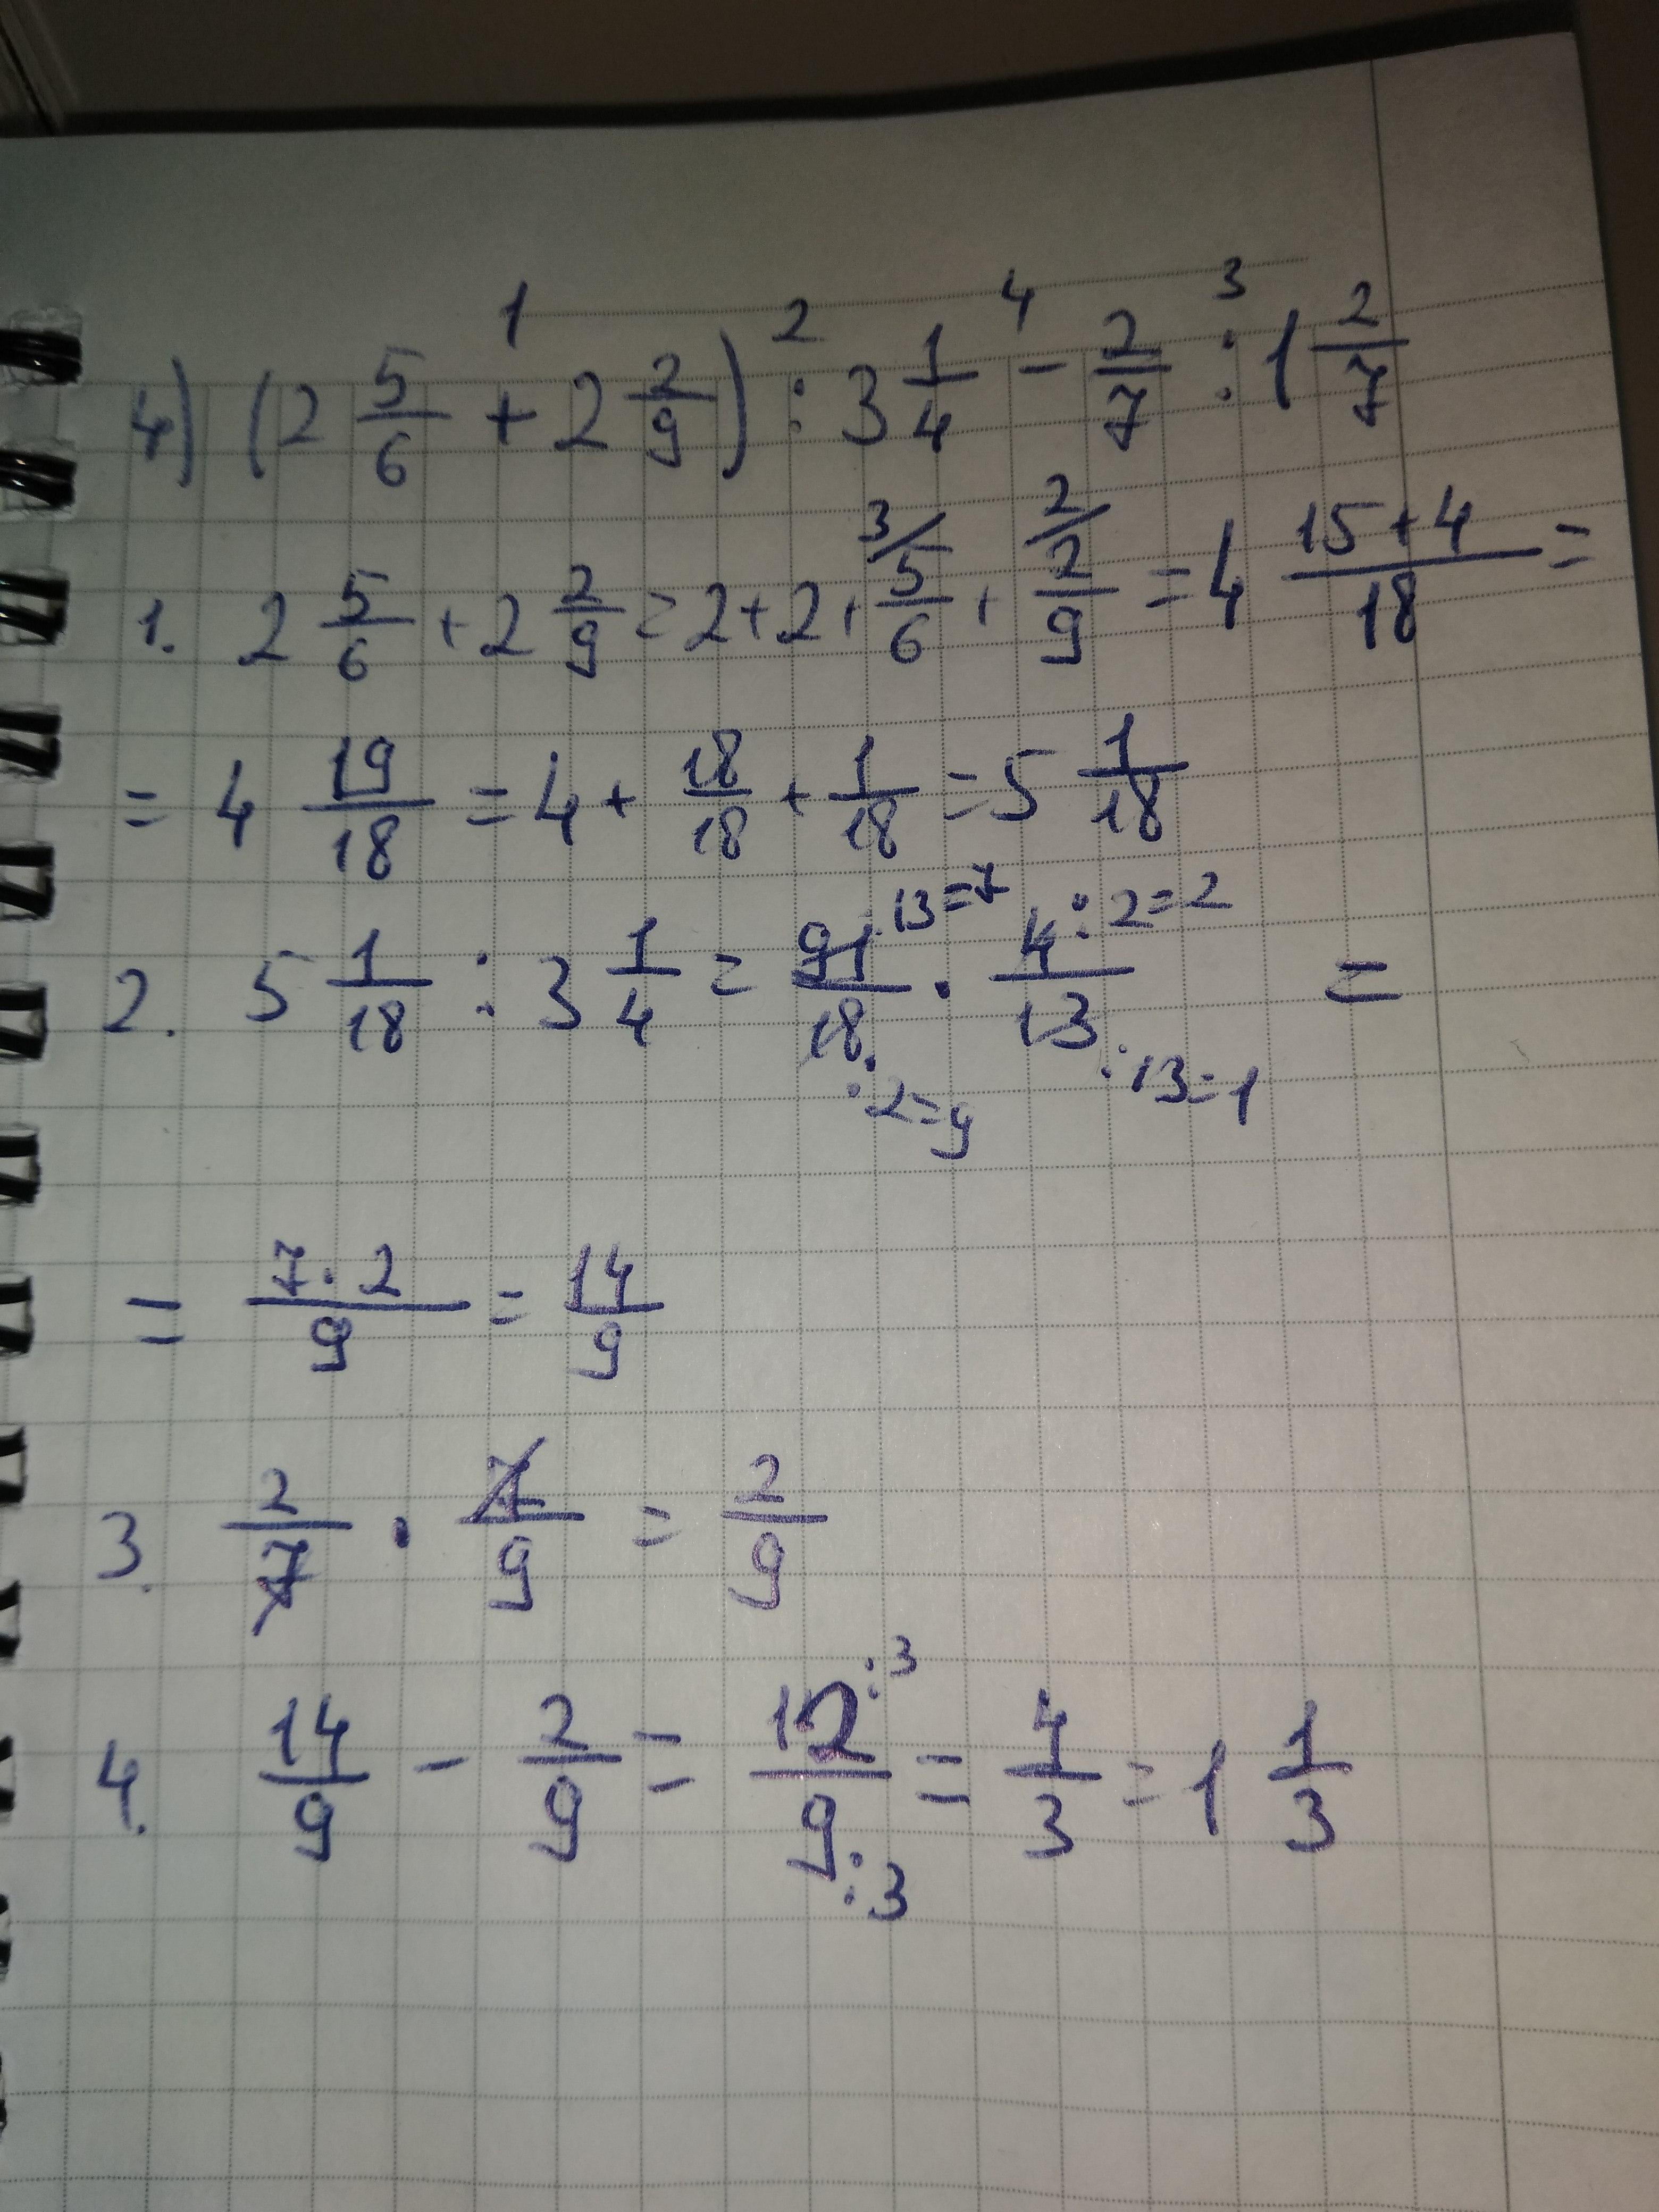 1 2 4 3
4) (2 5/6 + 2 2/9) : 3 1/4 - 2/7 : 1 2/7
1. 2 5/6 + 2 2/9 = 2 + 2 + 3/ 5/6 + 2/ 2/9 = 4 (15+4)/18 =
= 4 19/18 = 4 + 18/18 + 1/18 = 5 1/18
:13=7 :2=2
2. 5 1/18 : 3 1/4 = 91/18 · 4/13 =
:2=9 :13=1
= (7·2)/9 = 14/9
3. 2/7 · 7/9 = 2/9
:3
4. 14/9 - 2/9 = 12/9 = 4/3 = 1 1/3
:3